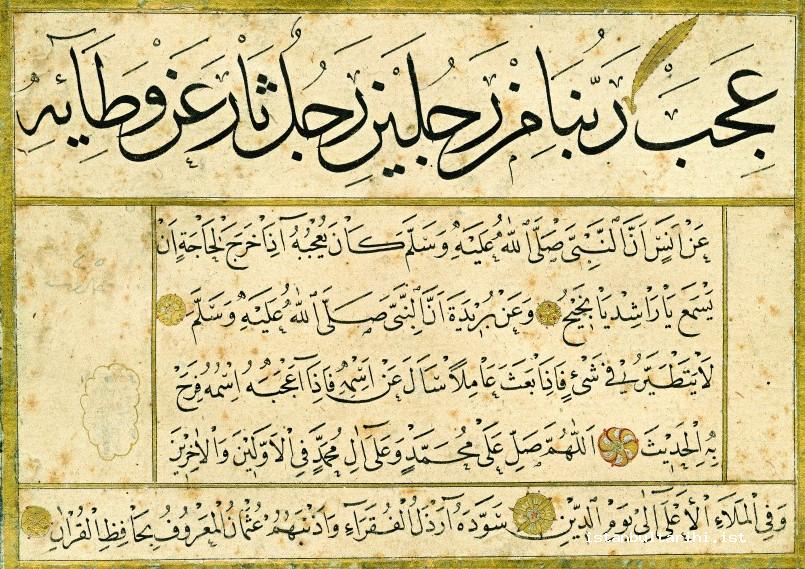 عَجِبَ رَبُّنَا مِنْ رَجُلَيْنِ رَجُلٌ ثَارَ عَنْ وِطَائِهِ
عَنْ اَنَسٍ اَنَّ النَّبِيَّ صَلَّى اللهُ عَلَيْهِ وَسَلَّمَ كَانَ يُعْجِبُهُ اِذَا خَرَجَ لِحَاجَةٍ اَنْ
يَسْمَعَ يَا رَاشِدُ يَا نَجِيحُ وَعَنْ بُرَيْدَةَ اَنَّ النَّبِيَّ صَلَّى اللهُ عَلَيْهِ وَسَلَّمَ
لَا يَتَطَيَّرُ فِي شَيْءٍ فَاِذَا بَعَثَ عَامِلًا سَاَلَ عَنْ اسْمِهِ فَاِذَا اَعْجَبَهُ اسْمُهُ فَرِحَ
بِهِ الْحَدِيثَ اَللّٰهُمَّ صَلِّ عَلَى مُحَمَّدٍ وَعَلَى اٰلِ مُحَمَّدٍ فِي الْاَوَّلِينَ وَالْاٰخِرِينَ
وَفِي الْمَلَاءِ الْاَعْلَى اِلَى يَوْمِ الدِّينِ سَوَّدَهُ اَرْذَلُ الْفُقَرَاءِ وَاَدْنَيهُمْ عُثْمَانُ الْمَعْرُوفُ بِحَافِظِ الْقُرْاٰنِ
istanbultarihi.ist